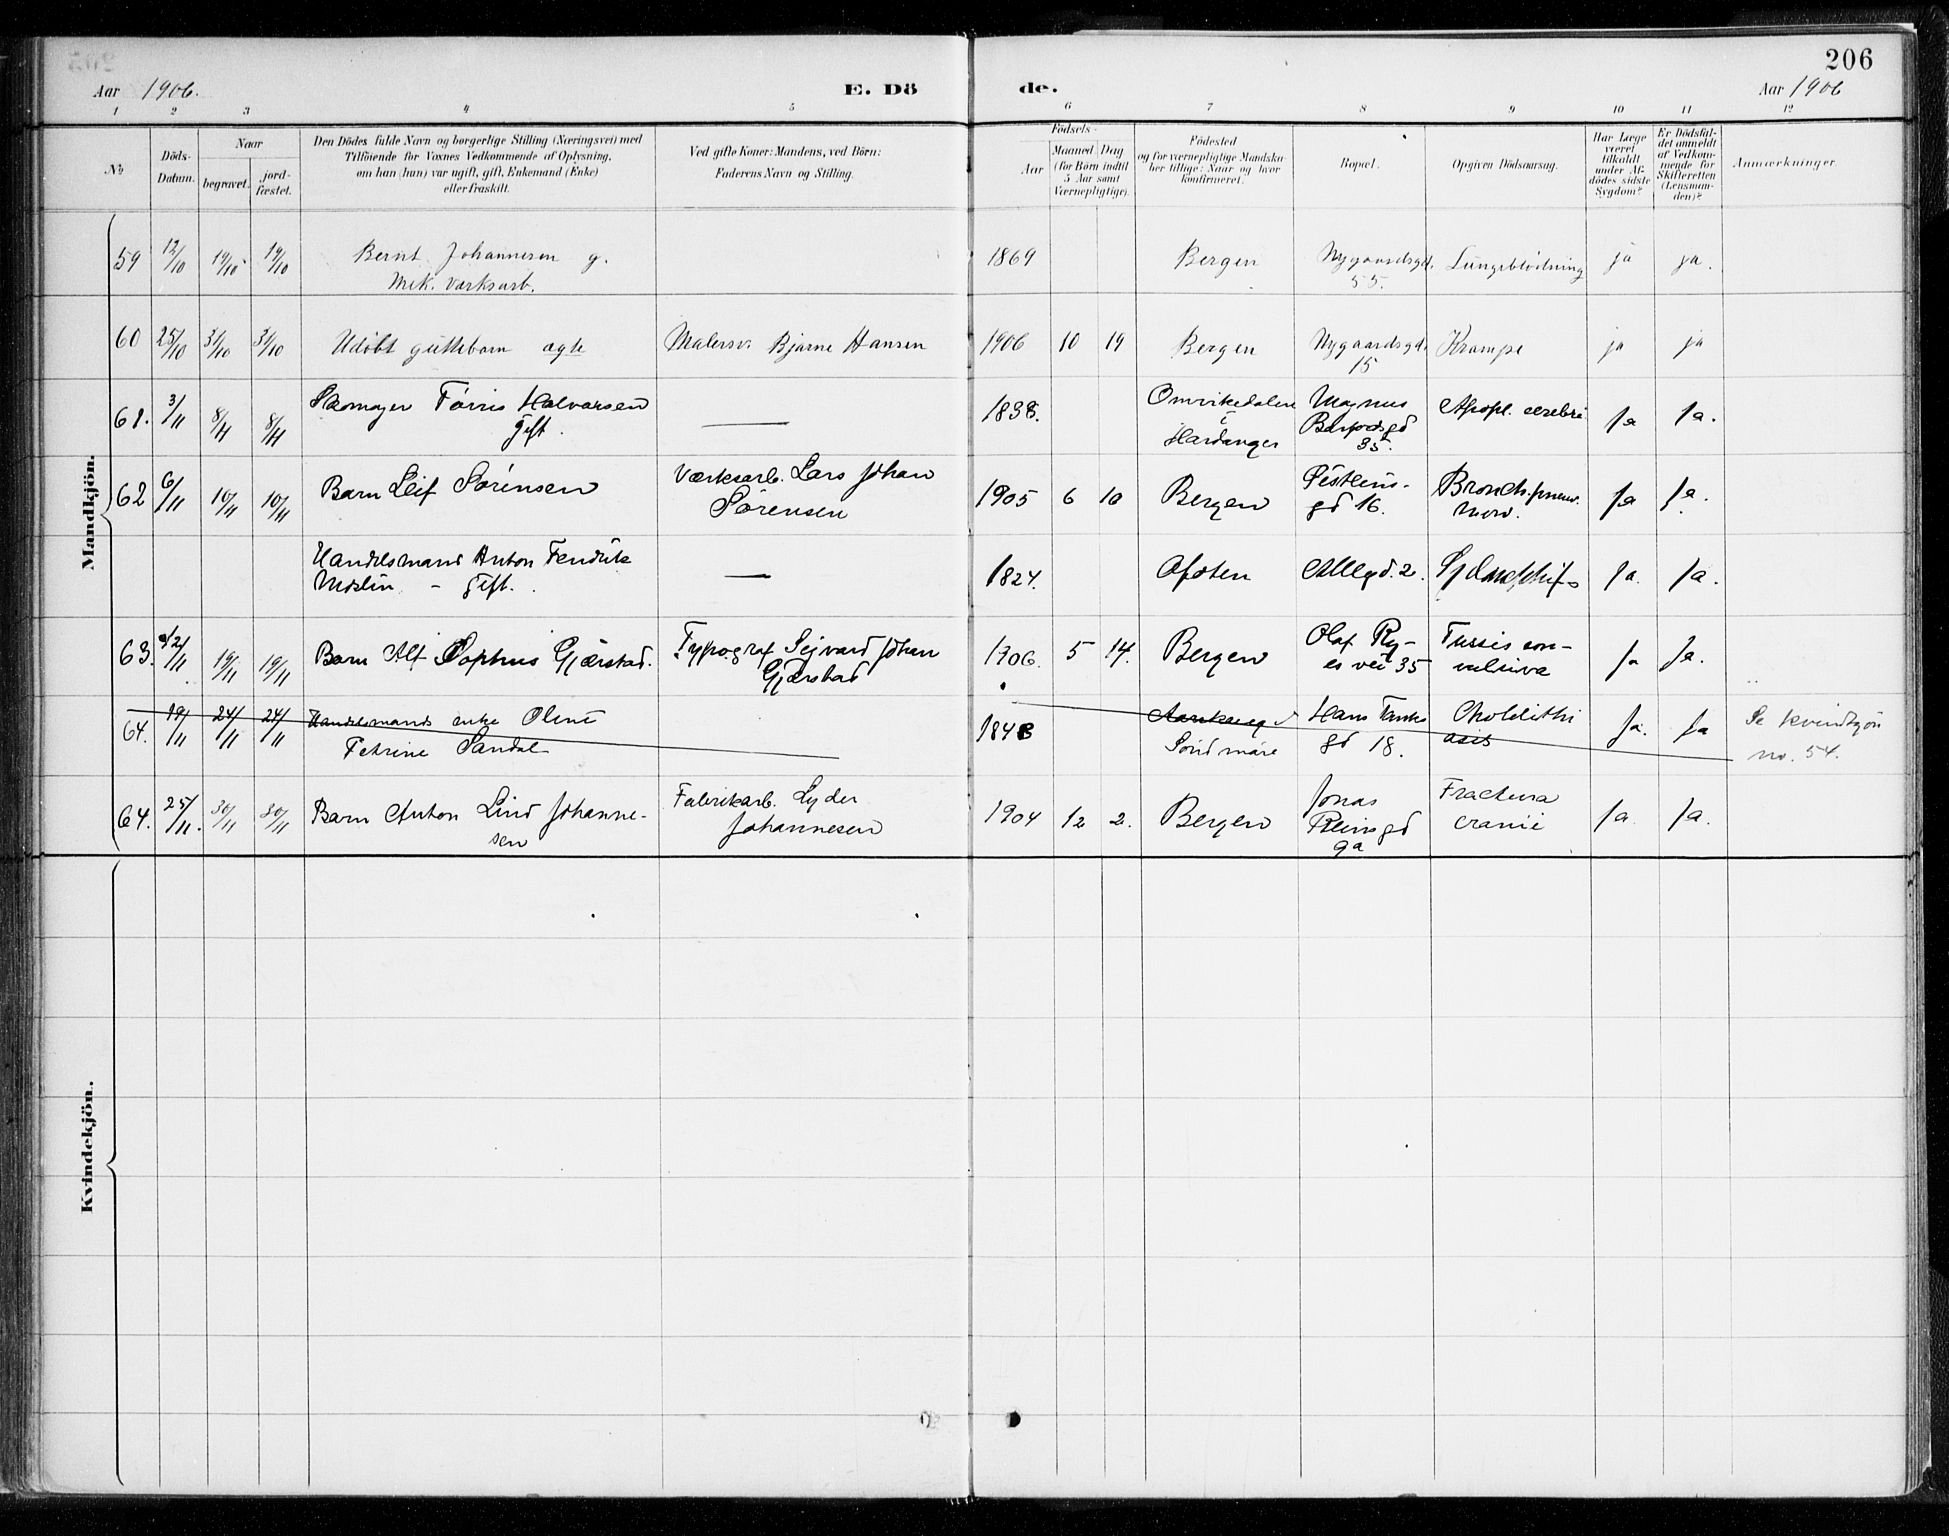 206
Aar 1906.
E. Dö
de.
Aar 1906
1 2 3 4 5 6 7 8 9 10 11 12
No
Döds-
Datum.
Naar
begravet.
jord-
fæstet.
Den Dödes fulde Navn og borgerlige Stilling (Næringsvei) med
Tilföiende for Voxnes Vedkommende af Oplysning,
om han (hun) var ugift, gift, Enkemand (Enke)
eller fraskilt.
Ved gifte Koner: Mandens, ved Börn:
Faderens Navn og Stilling.
Födsels-
Aar
Maaned
Dag
(for Börn indtil
5 Aar samt
Værnepligtige).
Födested
og for værnepligtige Mandska-
ber tillige: Naar og hvor
konfirmeret.
Bopæl.
Opgiven Dödsaarsag.
Har Læge
været
tilkaldt
under Af-
dödes sidste
Sygdom?
Er Dödsfal-
det anmeldt
af Vedkom-
mende for
Skifteretten
(Lensman-
den)?
Anmærkninger.
Mandkjön.
59 12/10 19/10 19/10 Bernt Johannesen g.
Mek. Værksarb.
1869 Bergen Nygaardsgd.
55.
Lungeblödning ja ja.
60 25/10 31/10 31/10 Udöbt guttebarn ægte Malersv. Bjarne Hansen 1906 10 19 Bergen Nygaardsgd.
15
Krampe ja ja
61. 3/11 8/11 8/11 Skomager Tørris Halvorsen
Gift.
— 1838. Omvikedalen
i
Hardanger
Magnus
Barfodsgd
35.
Apopl. cerebri Ja Ja.
62 6/11 10/11 10/11 Barn Leif Sörensen Værksarb. Lars Johan
Sörensen
1905 6 10 Bergen
gd 16.
Bronch. pneu-
mon.
Ja Ja.
Handelsmand Anton
— gift.
— 1824. Allegd. 2. Ja. Ja.
63. 12/11 19/11 19/11 Barn Alf Sophus Gjærstad. Typograf Sejvard Johan
Gjærstad
1906. 5 14. Bergen Olaf Ry-
es vei 35
Tussis con-
vulsiva
Ja Ja.
64. 19/11 24/11 24/11 Handelsmands enke Oline
Petrine Sandal
1848 Söndmöre Hans Tanks
gd 18.
Cholelithi
asis
Ja. Ja Se kvindkjön
no. 54.
64. 25/11. 30/11 30/11 Barn Anton Lind Johanne-
sen
Fabrikarb. Lyder
Johannesen
1904 12 2. Bergen Jonas
Reinsgd
9a
Fractura
cranii
Ja Ja.
Kvindekjön.